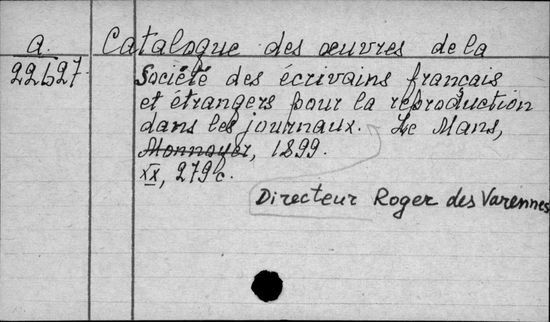 a. Catalogue des œuvres de la
22627. Société des écrivains français
et étrangers pour la reproduction
dans les journaux. Le Mans,
Monnoyer, 1899.
XX, 279 c.
Directeur Roger des Varennes